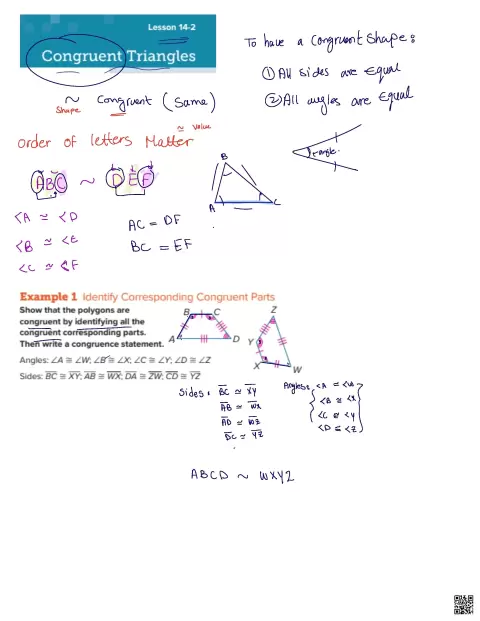 Lesson 14-2
Congruent Triangles
To have a Congruent Shape:
① All sides are Equal
② All angles are Equal
~ Congruent (Same)
Shape
≃ Value
order of letters Matter
angle
ABC ~ DEF
B
A
C
<A ≅ <D
<B ≅ <E
<C ≅ <F
AC = DF
BC = EF
Example 1 Identify Corresponding Congruent Parts
Show that the polygons are
congruent by identifying all the
congruent corresponding parts.
Then write a congruence statement.
B C
A D
Z
Y
X
W
Angles: ∠A ≅ ∠W; ∠B ≅ ∠X; ∠C ≅ ∠Y; ∠D ≅ ∠Z
Sides: BC ≅ XY; AB ≅ WX; DA ≅ ZW; CD ≅ YZ
Sides: BC ≅ XY
AB ≅ WX
AD ≅ WZ
DC ≅ YZ
Angles: <A = <W
<B ≅ <X
<C ≅ <Y
<D ≅ <Z
ABCD ~ WXYZ